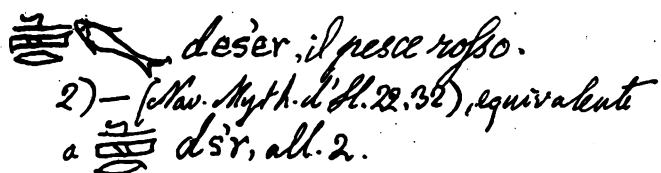 deśer, il pesce rosso.
2) — (Nav. Myth. d'H. 22.32), equivalente
a dśr, all. 2.